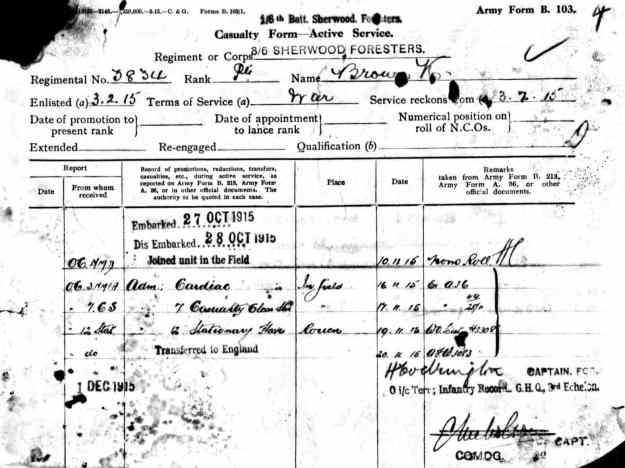 Forms B. 103/1.
1/6th Batt. Sherwood Foresters.
Army Form B. 103.
Casualty Form—Active Service.
Regiment or Corps 3/6 SHERWOOD FORESTERS.
Regimental No. 3834 Rank Pte Name Brown
Enlisted (a) 3.2.15 Terms of Service (a) War Service reckons from (a) 3.2.15
Date of promotion to present rank
Date of appointment to lance rank
Numerical position on roll of N.C.Os.
Extended Re-engaged Qualification (b)
Report
Date
From whom received
Record of promotions, reductions, transfers, casualties, etc., during active service, as reported on Army Form B. 213, Army Form A. 36, or in other official documents. The authority to be quoted in each case.
Place
Date
Remarks
taken from Army Form B. 213, Army Form A. 36, or other official documents.
Embarked 27 OCT 1915
Dis Embarked 28 OCT 1915
Joined unit in the Field 10.11.15 Roll
Adm: Cardiac 16.11.15 A36
7 Casualty Clear 17.11.15
12 Stat 12 Stationary Rouen 19.11.15
do Transferred to England 20.11.15
1 DEC 1915
CAPTAIN. FOR.
O i/c Terr; Infantry Record. G.H.Q, 3rd Echelon.
CAPT.
COMDG.